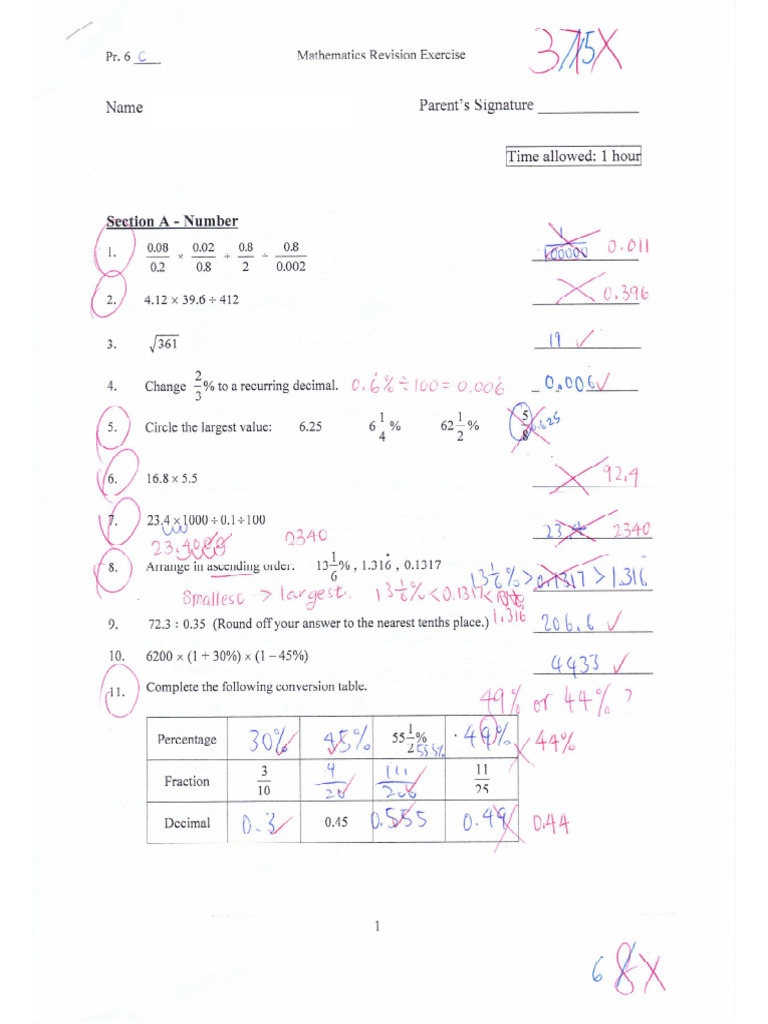 Pr. 6 C
Mathematics Revision Exercise
Name
Parent's Signature
Time allowed: 1 hour
Section A - Number
1. 0.08/0.2 × 0.02/0.8 + 0.8/2 ÷ 0.8/0.002 1/100000 0.011
2. 4.12 × 39.6 ÷ 412 0.396
3. √361 19 ✓
4. Change 2/3 % to a recurring decimal. 0.6̇% ÷ 100 = 0.006̇ 0.006̇ ✓
5. Circle the largest value: 6.25 6 1/4 % 62 1/2 % 5/8 0.625
6. 16.8 × 5.5 92.4
7. 23.4 × 1000 ÷ 0.1 ÷ 100 23.4 2340
2340
8. Arrange in ascending order: 13 1/6 % , 1.316̇ , 0.1317 13 1/6 % > 0.1317 > 1.316̇
Smallest -> largest. 13 1/6 % < 0.1317 < 1.316
9. 72.3 : 0.35 (Round off your answer to the nearest tenths place.) 206.6 ✓
10. 6200 × (1 + 30%) × (1 – 45%) 4433 ✓
11. Complete the following conversion table. 49% or 44% ?
Percentage 30% 45% 55 1/2 % 55.5% 49% 44%
Fraction 3/10 9/20 111/200 11/25
Decimal 0.3 0.45 0.555 0.49 0.44
1